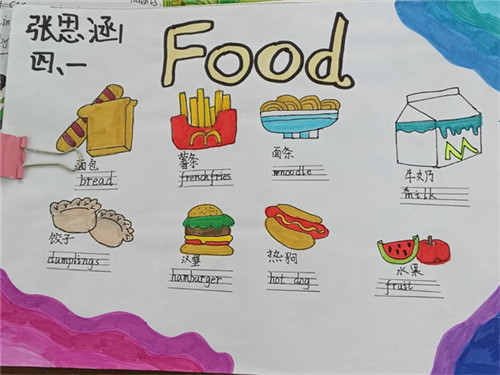 张思涵
四、一
Food
面包
bread
薯条
frenchfries
面条
nnoodle
牛奶
milk
饺子
dumplings
汉堡
hamburger
热狗
hot dog
水果
fruit